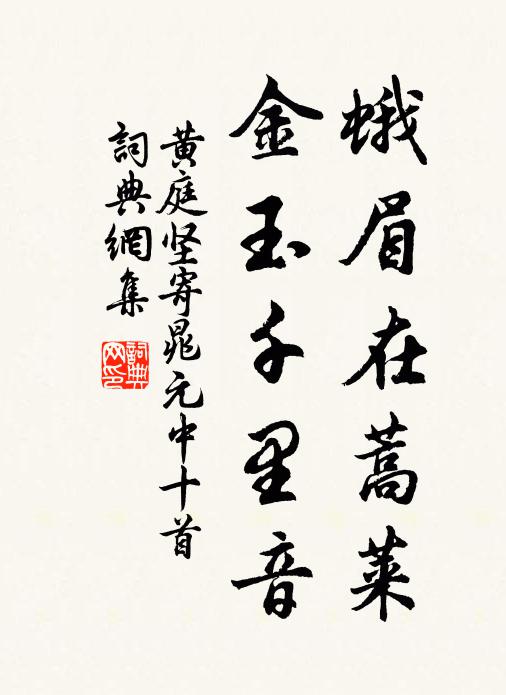 蛾眉在蒿莱
金玉千里音
黄庭坚寄晁元中十首
詞典網集
詞典網印